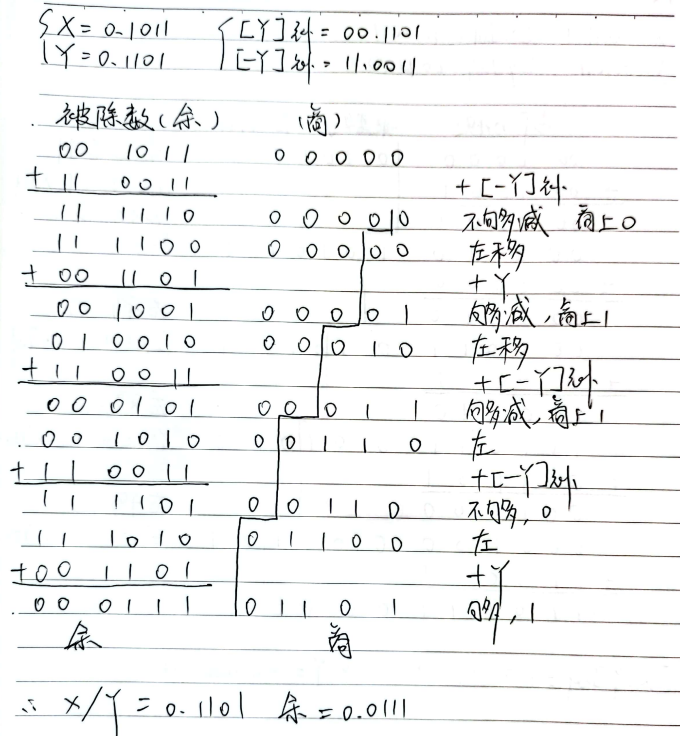 { X = 0.1011 { [Y]补 = 00.1101
Y = 0.1101 [-Y]补 = 11.0011
被除数(余) (商)
00 1011 0 0 0 0 0
+ 11 0011 + [-Y]补
11 1110 0 0 0 0 0 不够减 商上0
11 1100 0 0 0 0 0 左移
+ 00 1101 + Y
00 1001 0 0 0 0 1 够减,商上1
01 0010 0 0 0 1 0 左移
+ 11 0011 + [-Y]补
00 0101 0 0 0 1 1 够减,商上1
00 1010 0 0 1 1 0 左
+ 11 0011 + [-Y]补
11 1101 0 0 1 1 0 不够,0
11 1010 0 1 1 0 0 左
+ 00 1101 + Y
00 0111 0 1 1 0 1 够,1
余 商
∴ X/Y = 0.1101 余 = 0.0111